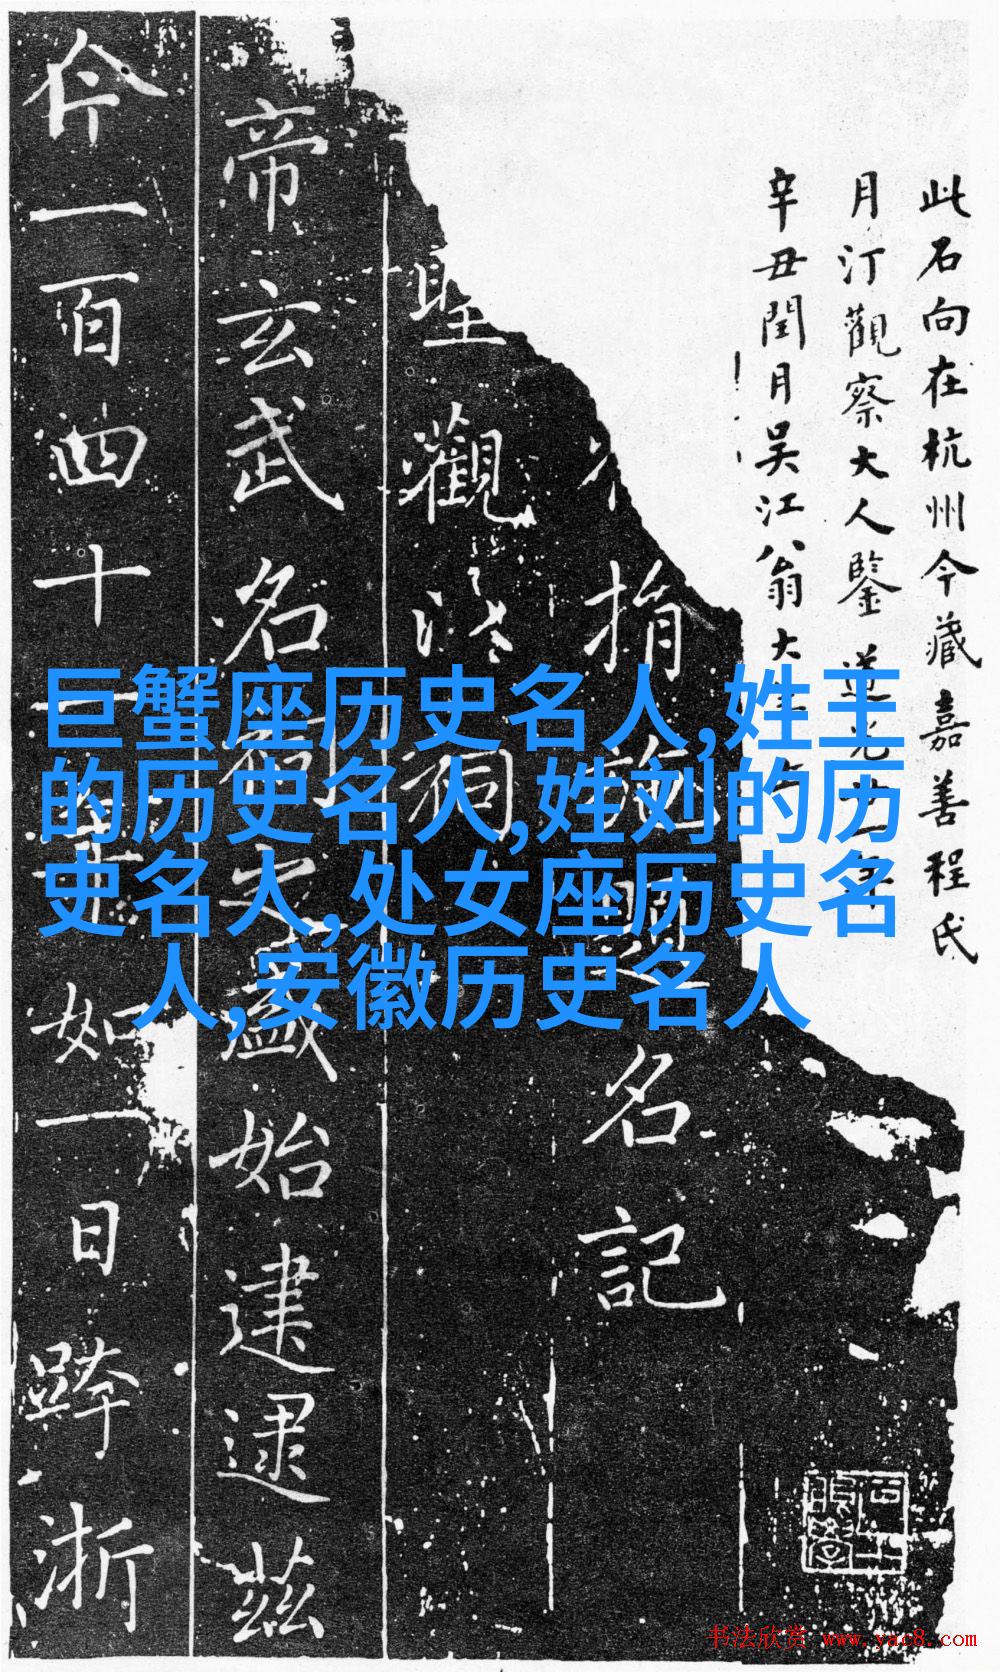 此石向在杭州今藏嘉善程氏
月汀觀察大人鑒 道光廿一年
辛丑閏月吳江翁大年
捐施題名記
聖觀
帝玄武名 之盛始建逮茲
一百四十 年如一日跨浙
巨蟹座历史名人,姓王
的历史名人,姓刘的历
史名人,处女座历史名
人,安徽历史名人
书法欣赏 www.yac8.com